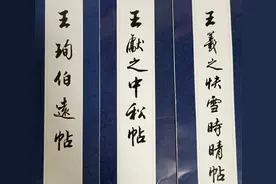 王羲之快雪時晴帖
王獻之中秋帖
王珣伯遠帖